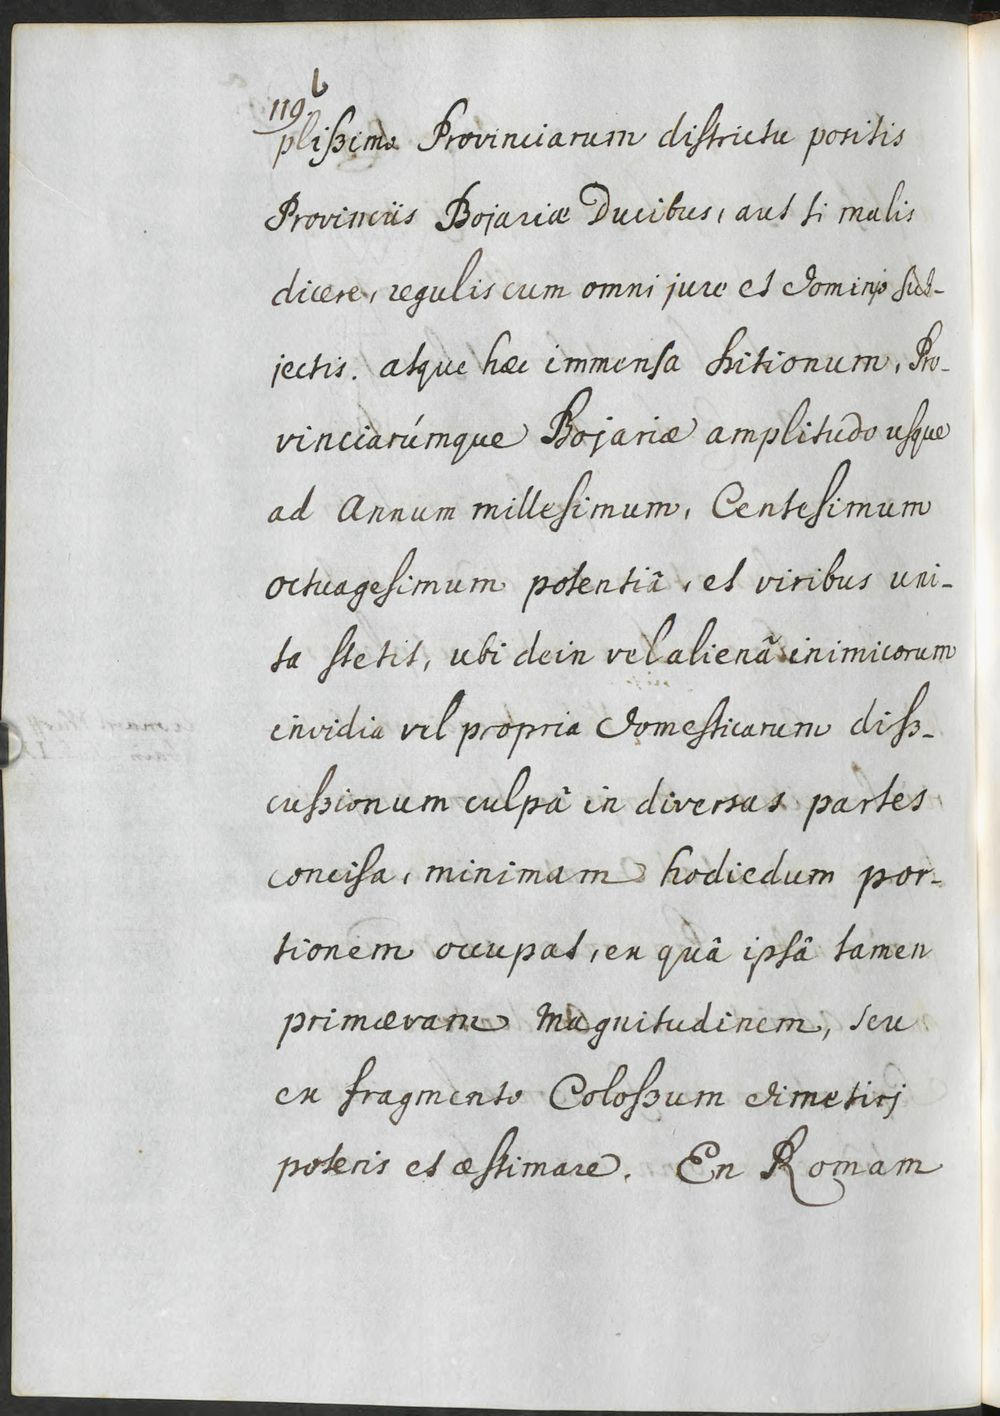 119.b
plißimo Provinciarum districtu positis
Provincijs Bojariæ Ducibus, aut si malis
dicere, regulis cum omni jure et dominjo sub-
jectis. atque hæc immensa sitionum, Pro-
vinciarúmque Bojariæ amplitudo usque
ad Annum millesimum, Centesimum
octuagesimum potentiâ, et viribus uni-
ta stetit, ubi dein vel alienâ inimicorum
invidia vel propria domesticarum diß-
cußionum culpâ in diversas partes
concisa, minimam hodiedum por-
tionem occupat, ex quâ ipsâ tamen
primævam magnitudinem, seu
ex fragmento Coloßum dimetirj
poteris et æstimare. En Romam